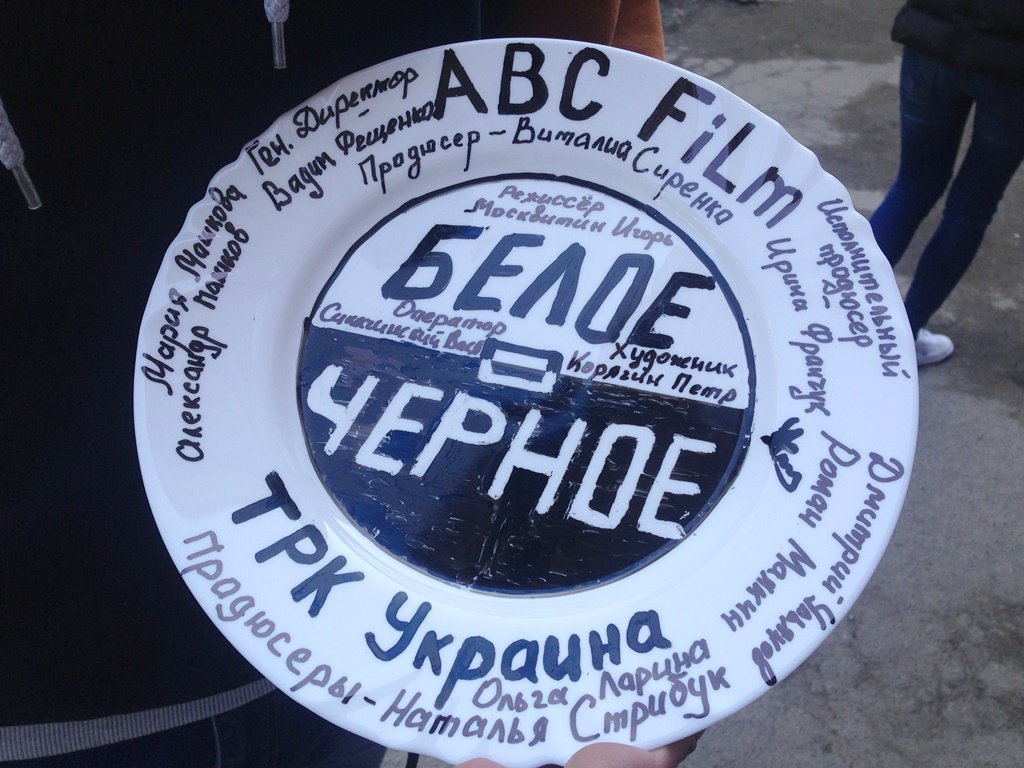 ABC FiLm
Ген. Директор
Вадим Фещенко
Продюсер - Виталий Сиренко
Исполнительный
продюсер
Ирина Франчук
Мария Машкова
Александр Пашков
Режиссёр
Москвитин Игорь
БЕЛОЕ
Оператор
Художник
Корягин Петр
ЧЕРНОЕ
Роман Маякин
Дмитрий Ульянов
ТРК Украина
Продюсеры - Наталья Стрибук
Ольга Ларина